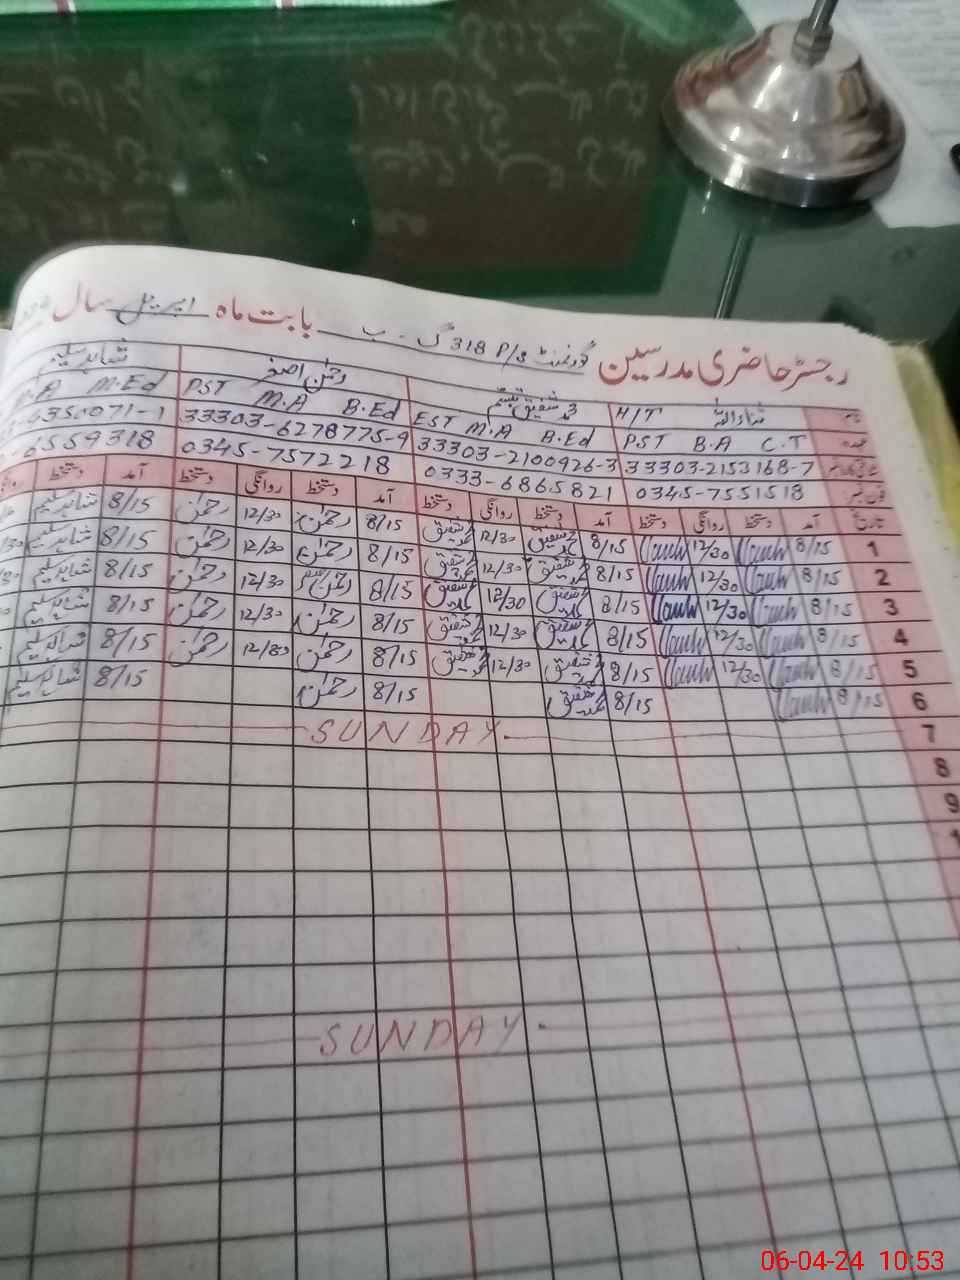 رجسٹر حاضری مدرسین گورنمنٹ P/S 318 گ ۔ ب بابت ماہ اپریل سال
نام ثناءاللہ H/T محمد شفیق رحمٰن اصغر شاہد سلیم
عہدہ PST B.A C.T EST M.A B.Ed PST M.A B.Ed M.A M.Ed
33303-2153168-7 33303-2100926-3 33303-6278775-9 6350071-1
فون نمبر 0345-7551518 0333-6865821 0345-7572218 6559318
تاریخ آمد دستخط روانگی دستخط آمد دستخط روانگی دستخط آمد دستخط روانگی دستخط آمد دستخط
1 8/15 12/30 8/15 محمد شفیق 12/30 محمد شفیق 8/15 رحمٰن 12/30 رحمٰن 8/15 شاہد سلیم
2 8/15 12/30 8/15 محمد شفیق 12/30 محمد شفیق 8/15 رحمٰن 12/30 رحمٰن 8/15 شاہد سلیم
3 8/15 12/30 8/15 محمد شفیق 12/30 محمد شفیق 8/15 رحمٰن 12/30 رحمٰن 8/15 شاہد سلیم
4 8/15 12/30 8/15 محمد شفیق 12/30 محمد شفیق 8/15 رحمٰن 12/30 رحمٰن 8/15 شاہد سلیم
5 8/15 12/30 8/15 محمد شفیق 12/30 محمد شفیق 8/15 رحمٰن 12/30 رحمٰن 8/15 شاہد سلیم
6 8/15 8/15 محمد شفیق 8/15 رحمٰن 8/15 شاہد سلیم
7 SUNDAY
8
9
SUNDAY
06-04-24 10:53